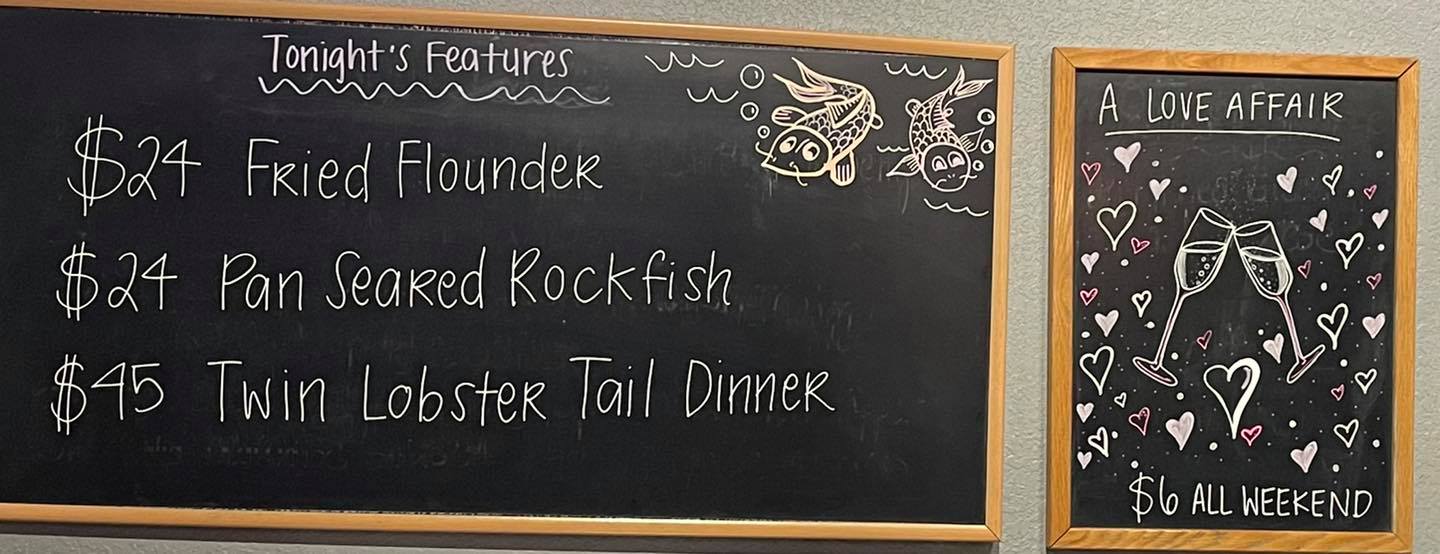 Tonight's Features
$24 Fried Flounder
$24 Pan Seared Rockfish
$45 Twin Lobster Tail Dinner
A LOVE AFFAIR
$6 ALL WEEKEND